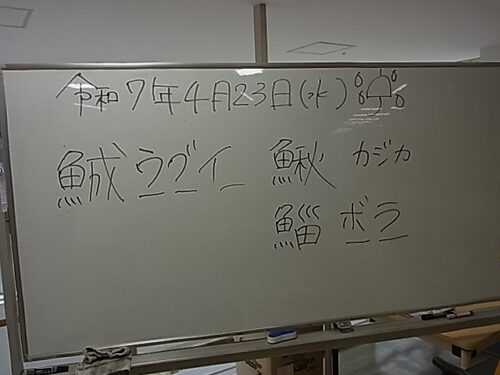 令和7年4月23日(水)
鯎 ウグイ 鰍 カジカ
鯔 ボラ